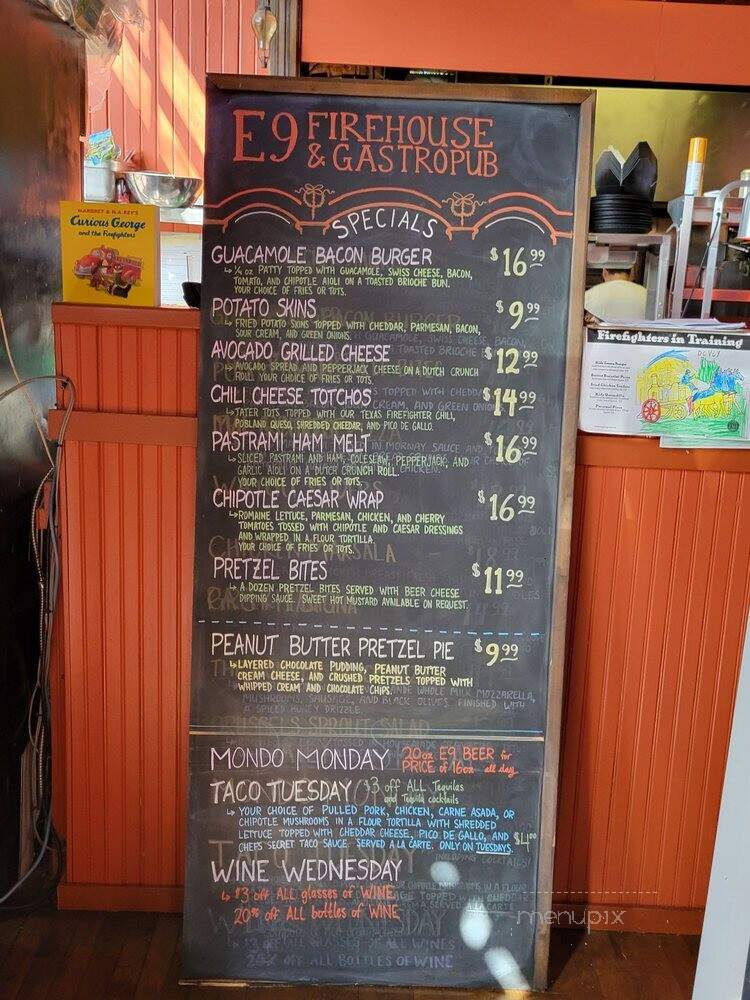 E9 FIREHOUSE
& GASTROPUB
SPECIALS
GUACAMOLE BACON BURGER $16.99
↳ ¼ oz PATTY TOPPED WITH GUACAMOLE, SWISS CHEESE, BACON,
TOMATO, AND CHIPOTLE AIOLI ON A TOASTED BRIOCHE BUN.
YOUR CHOICE OF FRIES OR TOTS.
POTATO SKINS $9.99
↳ FRIED POTATO SKINS TOPPED WITH CHEDDAR, PARMESAN, BACON,
SOUR CREAM, AND GREEN ONIONS.
AVOCADO GRILLED CHEESE $12.99
↳ AVOCADO SPREAD AND PEPPERJACK CHEESE ON A DUTCH CRUNCH
ROLL. YOUR CHOICE OF FRIES OR TOTS.
CHILI CHEESE TOTCHOS $14.99
↳ TATER TOTS TOPPED WITH OUR TEXAS FIREFIGHTER CHILI,
POBLANO QUESO, SHREDDED CHEDAR, AND PICO DE GALLO.
PASTRAMI HAM MELT $16.99
↳ SLICED PASTRAMI AND HAM, COLESLAW, PEPPERJACK, AND
GARLIC AIOLI ON A DUTCH CRUNCH ROLL.
YOUR CHOICE OF FRIES OR TOTS.
CHIPOTLE CAESAR WRAP $16.99
↳ ROMAINE LETTUCE, PARMESAN, CHICKEN, AND CHERRY
TOMATOES TOSSED WITH CHIPOTLE AND CAESAR DRESSINGS
AND WRAPPED IN A FLOUR TORTILLA.
YOUR CHOICE OF FRIES OR TOTS.
PRETZEL BITES $11.99
↳ A DOZEN PRETZEL BITES SERVED WITH BEER CHEESE
DIPPING SAUCE. SWEET HOT MUSTARD AVAILABLE ON REQUEST.
PEANUT BUTTER PRETZEL PIE $9.99
↳ LAYERED CHOCOLATE PUDDING, PEANUT BUTTER
CREAM CHEESE, AND CRUSHED PRETZELS TOPPED WITH
WHIPPED CREAM AND CHOCOLATE CHIPS.
WHOLE MILK MOZZARELLA,
MUSHROOMS, SAUSAGE, AND BLACK OLIVES FINISHED WITH
A SPICED HONEY DRIZZLE.
MONDO MONDAY 20oz E9 BEER for
PRICE of 16oz all day
TACO TUESDAY $3 off ALL Tequilas
and Tequila cocktails
↳ YOUR CHOICE OF PULLED PORK, CHICKEN, CARNE ASADA, OR
CHIPOTLE MUSHROOMS IN A FLOUR TORTILLA WITH SHREDDED
LETTUCE TOPPED WITH CHEDDAR CHEESE, PICO DE GALLO, AND
CHEFS SECRET TACO SAUCE. SERVED A LA CARTE. ONLY ON TUESDAYS. $4.00
WINE WEDNESDAY
↳ $3 off ALL glasses of WINE
20% off ALL bottles of WINE
↳ $3 OFF ALL GLASSES OF ALL WINES
25% OFF ALL BOTTLES OF WINE
MARGRET & H.A. REY'S
Curious George
and the Firefighters
Firefighters in Training
menupix